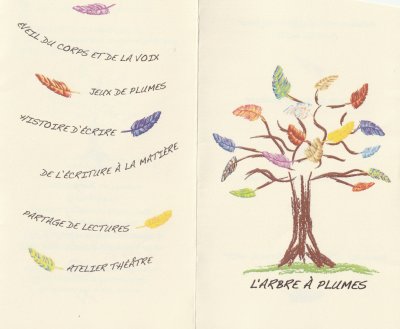 ÉVEIL DU CORPS ET DE LA VOIX
JEUX DE PLUMES
HISTOIRE D'ÉCRIRE
DE L'ÉCRITURE À LA MATIÈRE
PARTAGE DE LECTURES
ATELIER THÉÂTRE
L'ARBRE À PLUMES